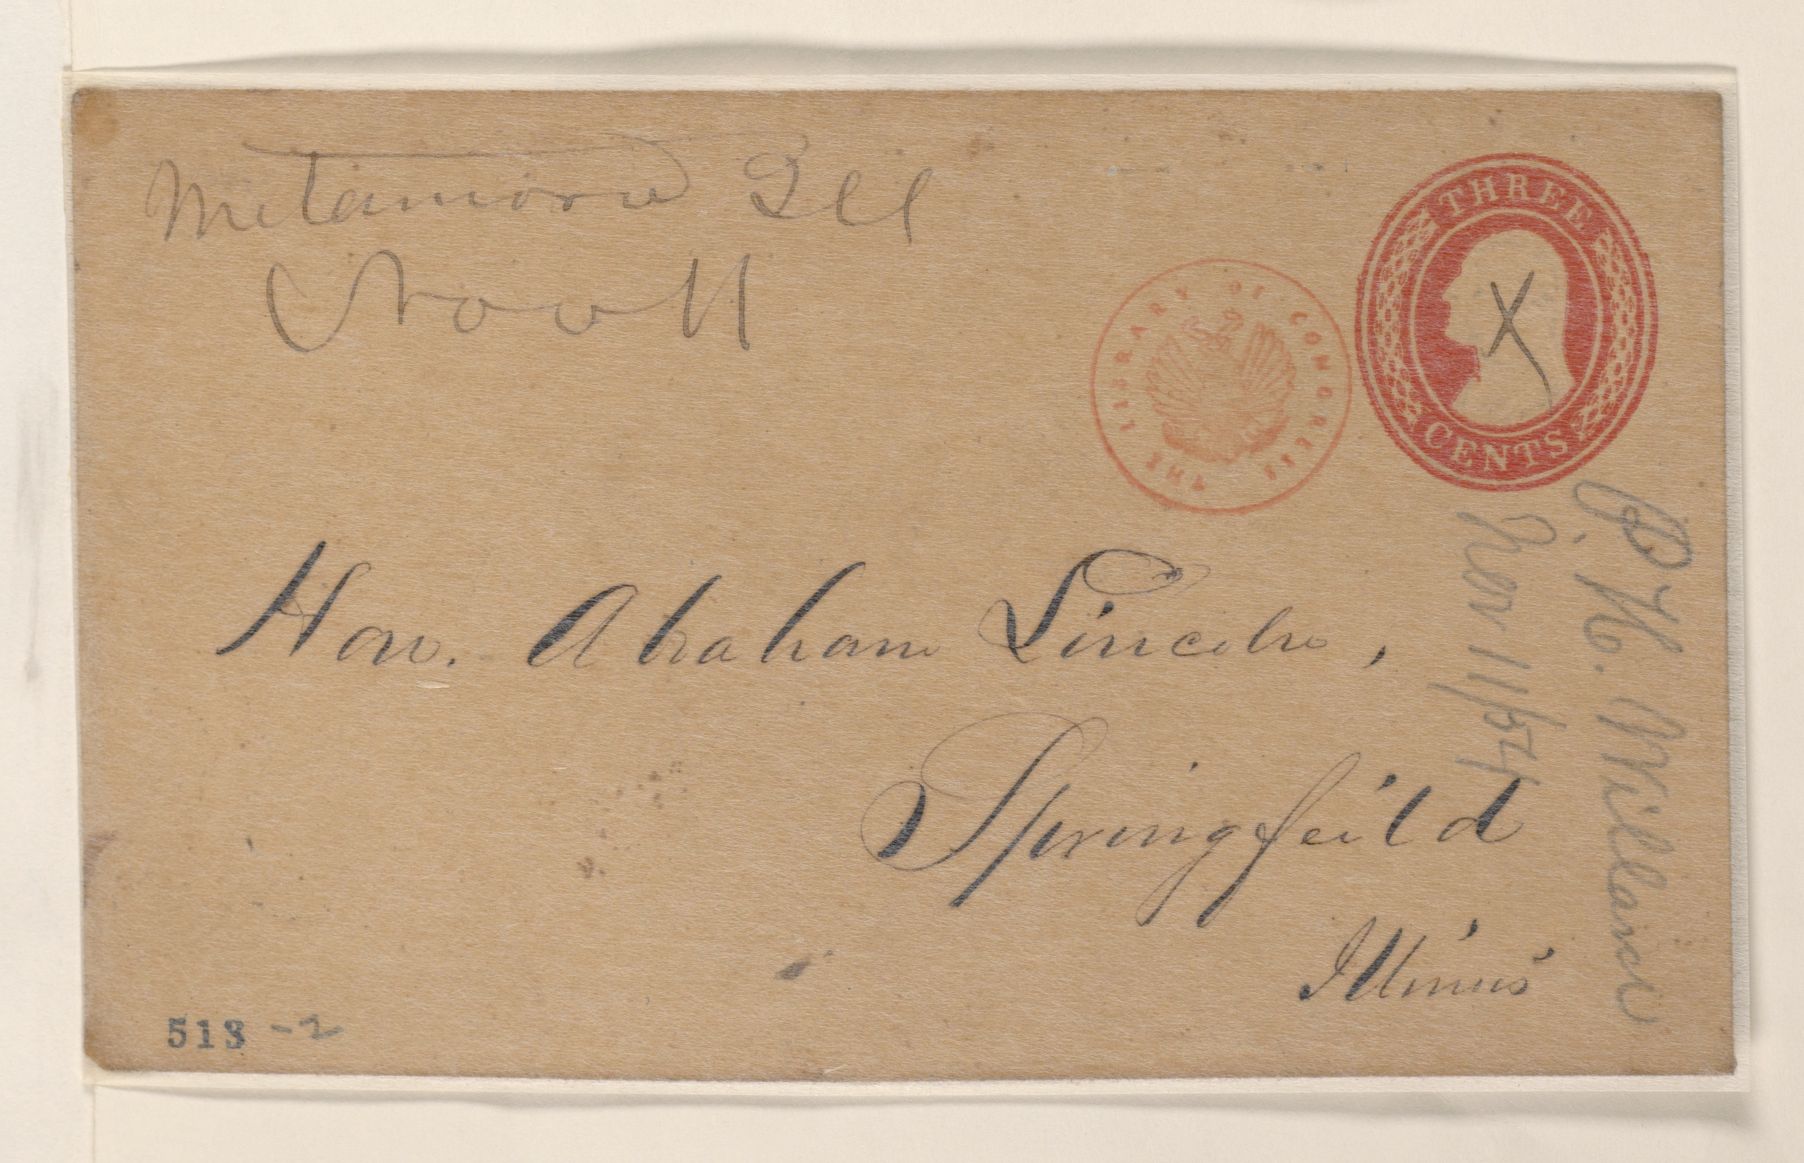 Metamora Ill
Nov 11
THREE
CENTS
THE LIBRARY OF CONGRESS
Hon. Abraham Lincoln,
Springfeild
Illinois
P. H. Willard
Nov 11/54
513 -2